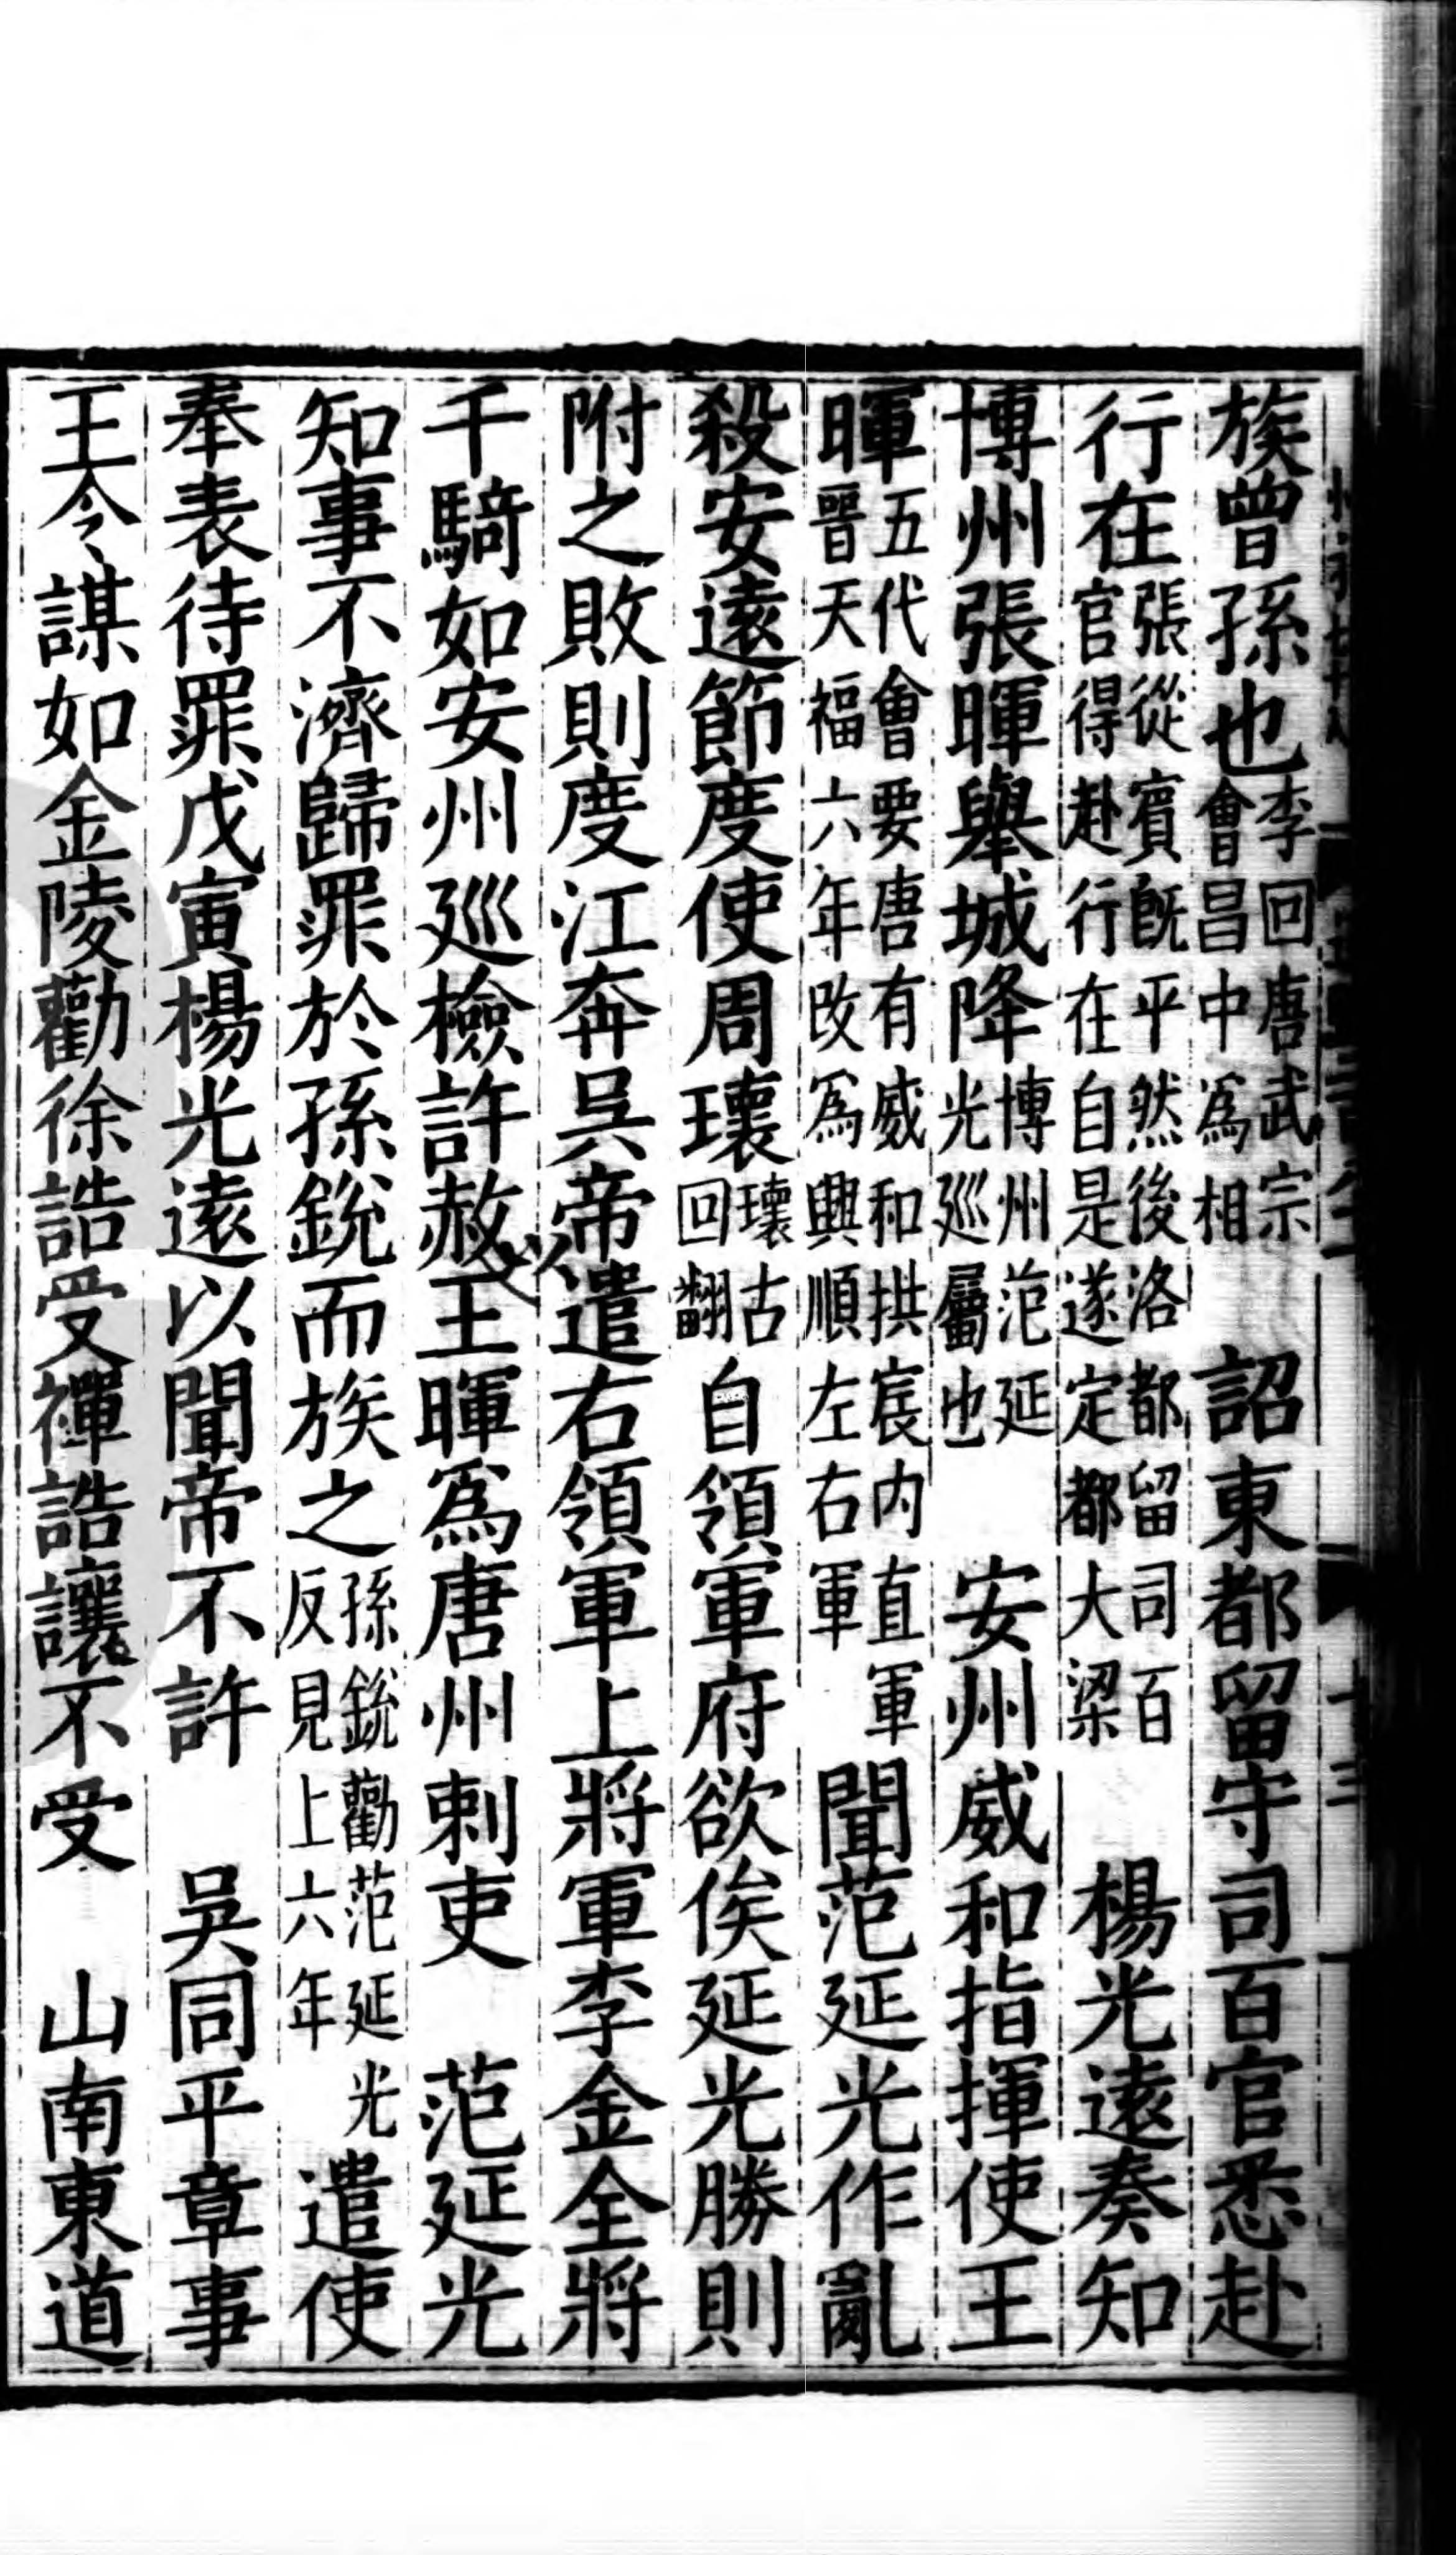 族曾孫也李回唐武宗會昌中爲相　詔東都留守司百官悉赴
行在張從賓旣平然後洛都留司百官得赴行在自是遂定都大梁　楊光遠奏知
博州張暉舉城降博州范延光廵屬也　安州威和指揮使王
暉五代會要唐有威和拱宸内直軍晉天福六年改爲興順左右軍聞范延光作亂
殺安遠節度使周瓌瓌古回翻自領軍府欲俟延光勝則
附之敗則度江奔吳帝遣右領軍上將軍李金全將
千騎如安州廵檢許赦王暉爲唐州刺吏　范延光
知事不濟歸罪於孫銳而族之孫銳勸范延光反見上六年遣使
奉表待罪戊寅楊光遠以聞帝不許　吳同平章事
王令謀如金陵勸徐誥受禪誥讓不受　山南東道